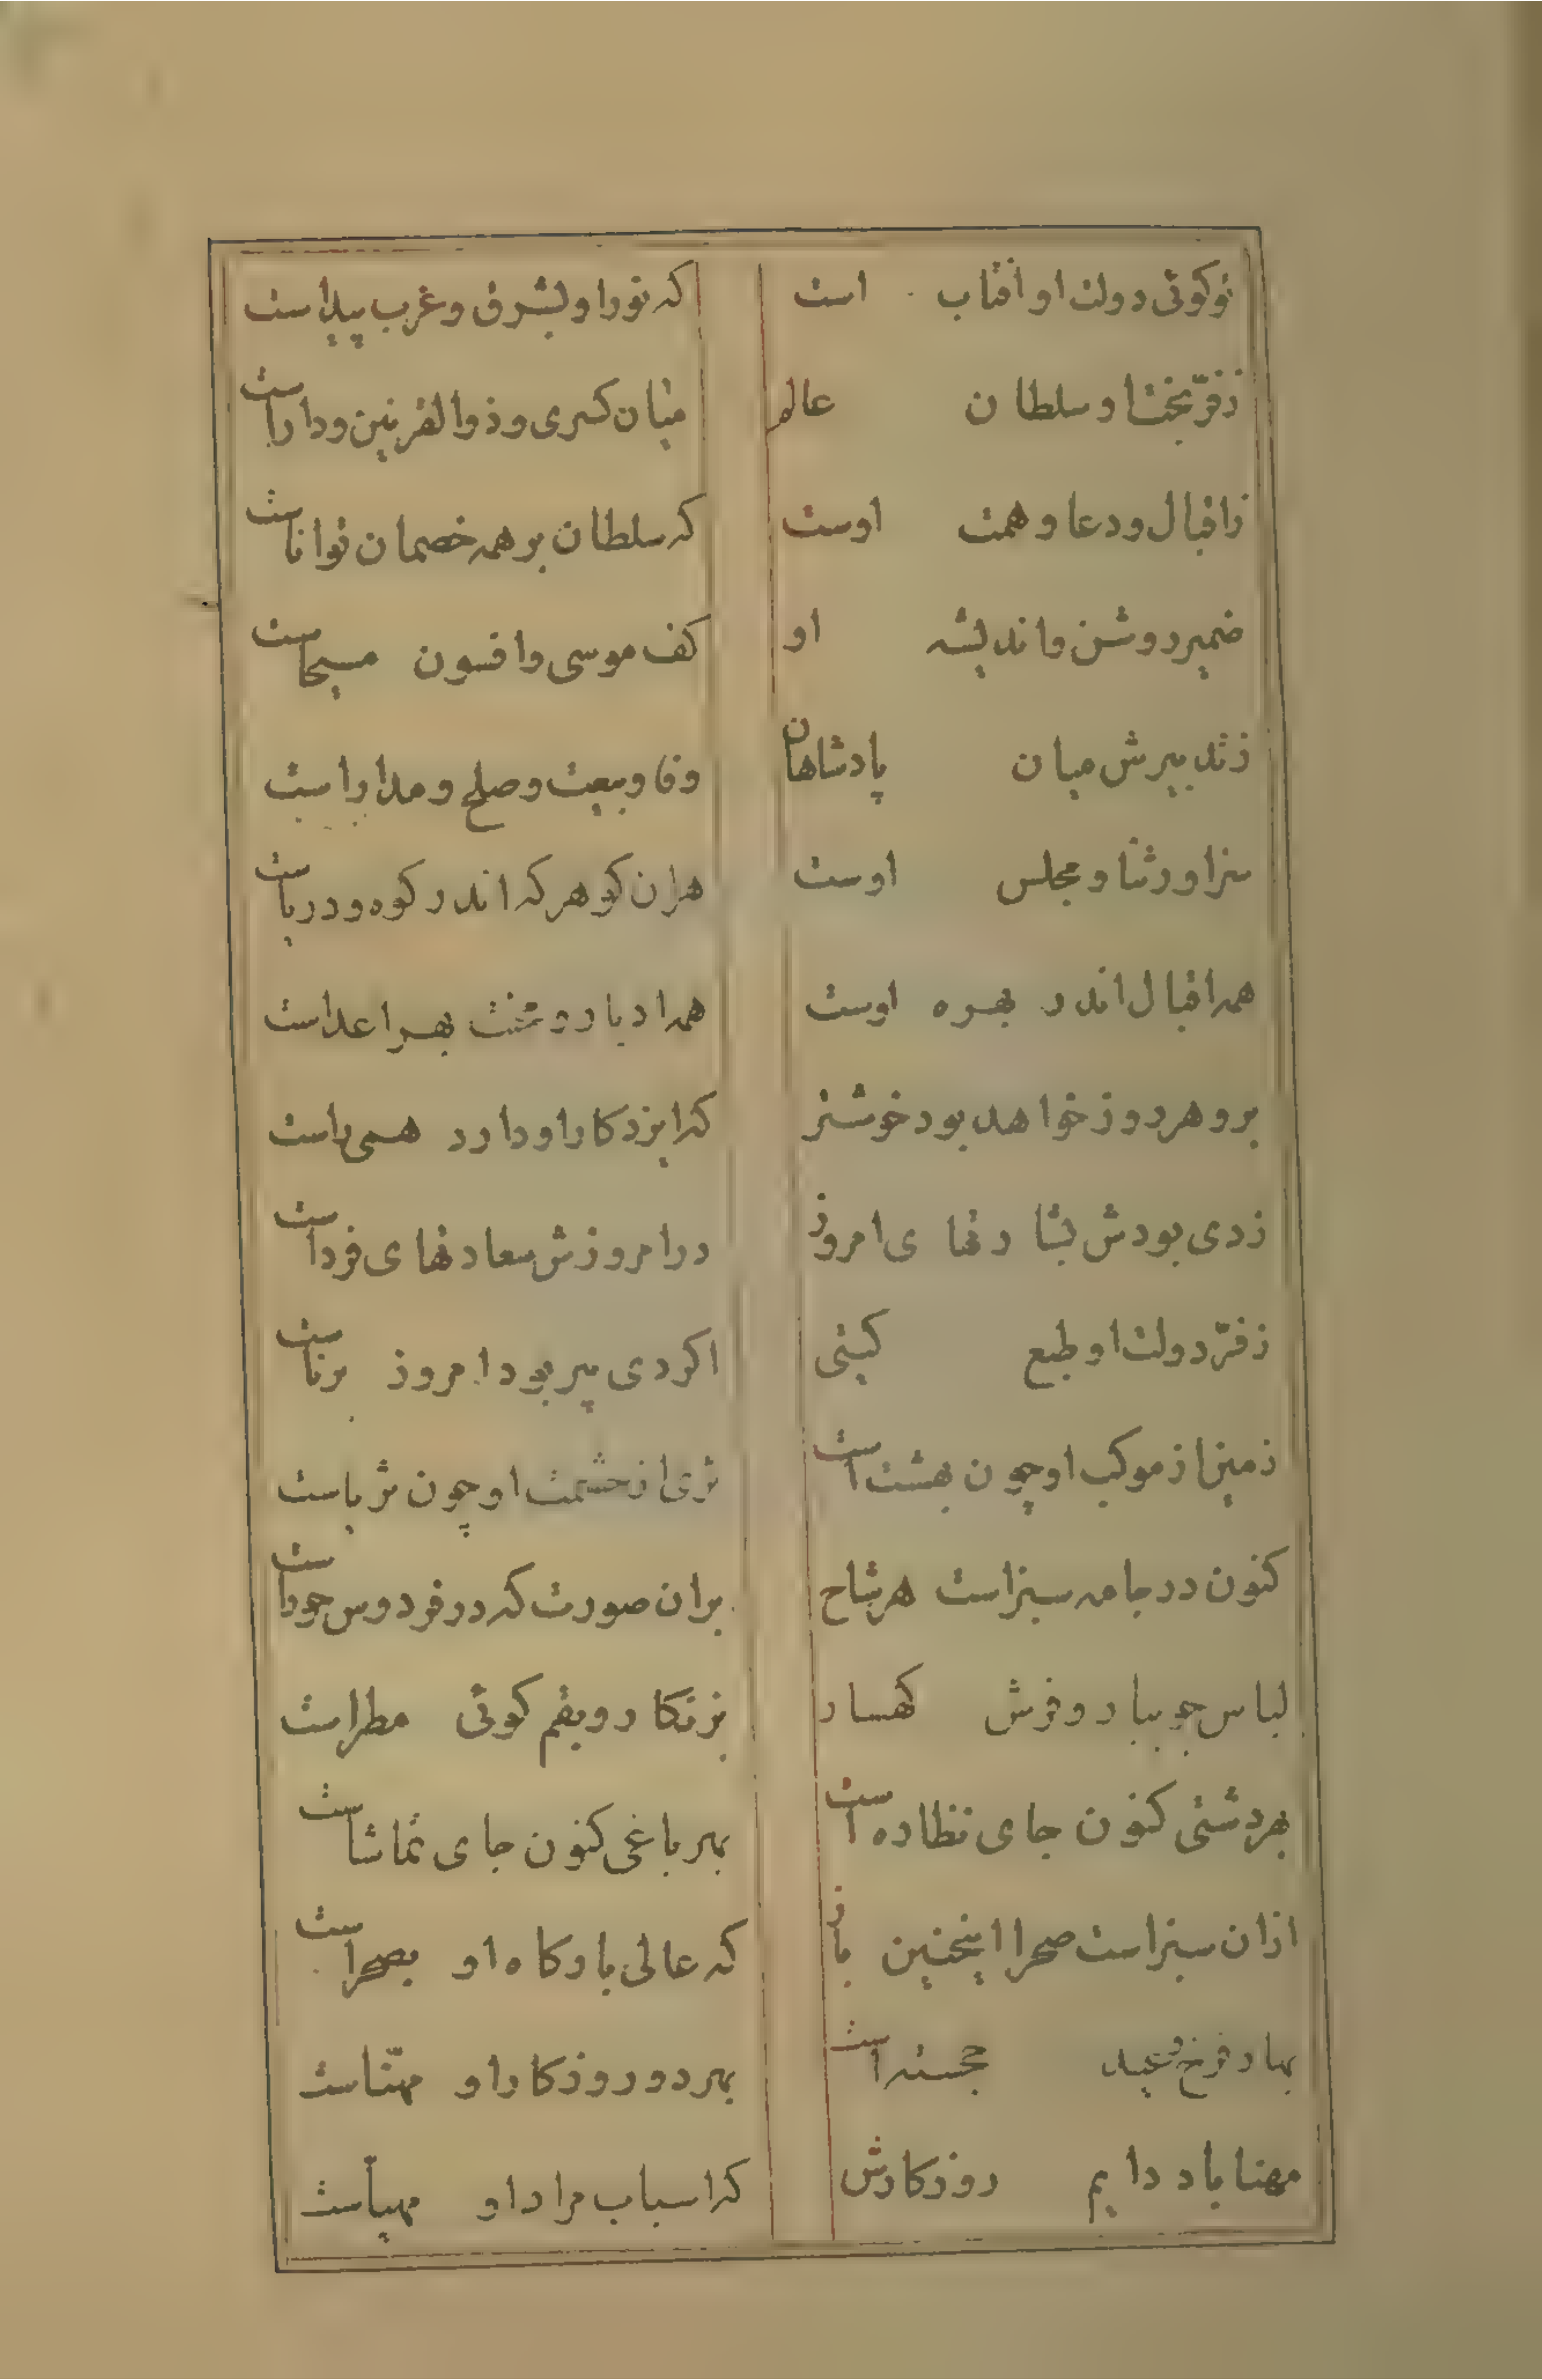 تو کوئی دولت او افتاب است
که نور او بشرق و غرب پیداست
ز فرّ بخت او سلطان عالم
میان کسری و ذوالقرنین و داراست
ز اقبال و دعا و همت اوست
که سلطان بر همه خصمان تواناست
ضمیر روشن و اندیشه او
کف موسی و افسون مسیحاست
ز تدبیرش میان پادشاهان
وفا و بیعت و صلح و مداراست
سزاور ثنا و مجلس اوست
هران کوهر که اندر کوه و دریاست
همه اقبال اندر بهره اوست
همه ادبار و محنت بهر اعداست
برو هر روز خواهد بود خوشتر
که ایزد کار او دارد همی راست
ز دی بودش بشارتهای امروز
در امروزش سعادتهای فرداست
ز فرّ دولت او طبع کیتی
اکر دی پیر بود امروز برناست
زمین از موکب او چون بهشت است
ثری از حشمت او چون ثریاست
کنون در جامه سبز است هر شاخ
بران صورت که در فردوس حوراست
لباس جویبار و فرش کهسار
بزنکار و بقم کوئی مطراست
بهر دشتی کنون جای نظاره است
بهر باغی کنون جای تماشاست
ازان سبز است صحرا اینچنین باز
که عالی بارکاه او بصحراست
بهار فرخ و عید خجسته است
بهر دو روزکار او مهنّاست
مهنا باد دایم روزکارش
که اسباب مراد او مهیّاست